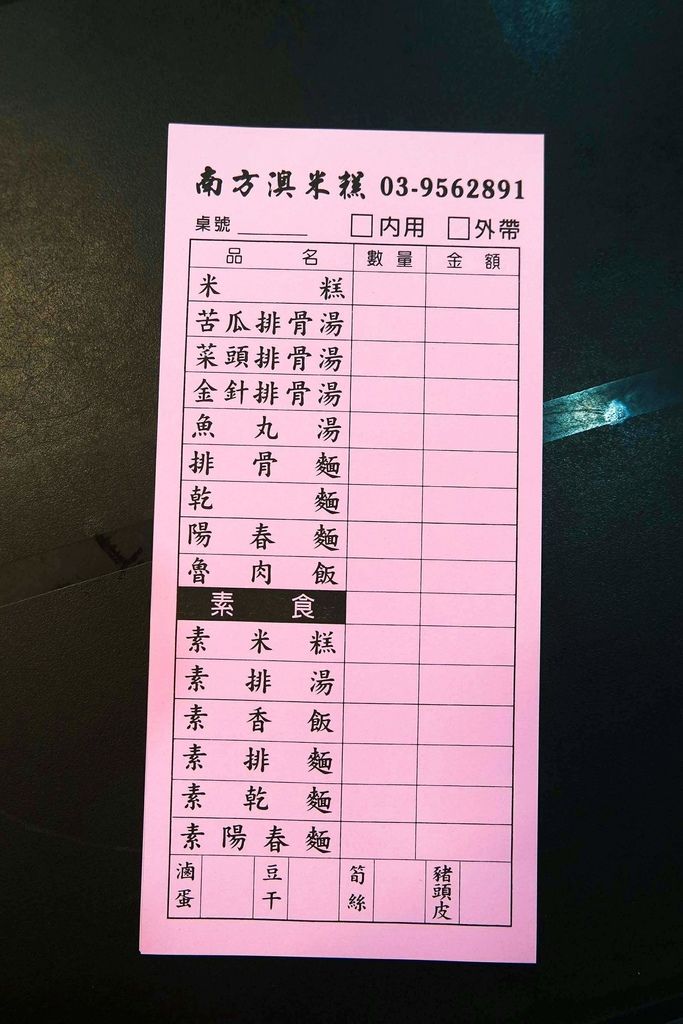 南方澳米糕 03-9562891
桌號 ______ □內用 □外帶
品名 數量 金額
米糕
苦瓜排骨湯
菜頭排骨湯
金針排骨湯
魚丸湯
排骨麵
乾麵
陽春麵
魯肉飯
素食
素米糕
素排湯
素香飯
素排麵
素乾麵
素陽春麵
滷蛋 豆干 筍絲 豬頭皮